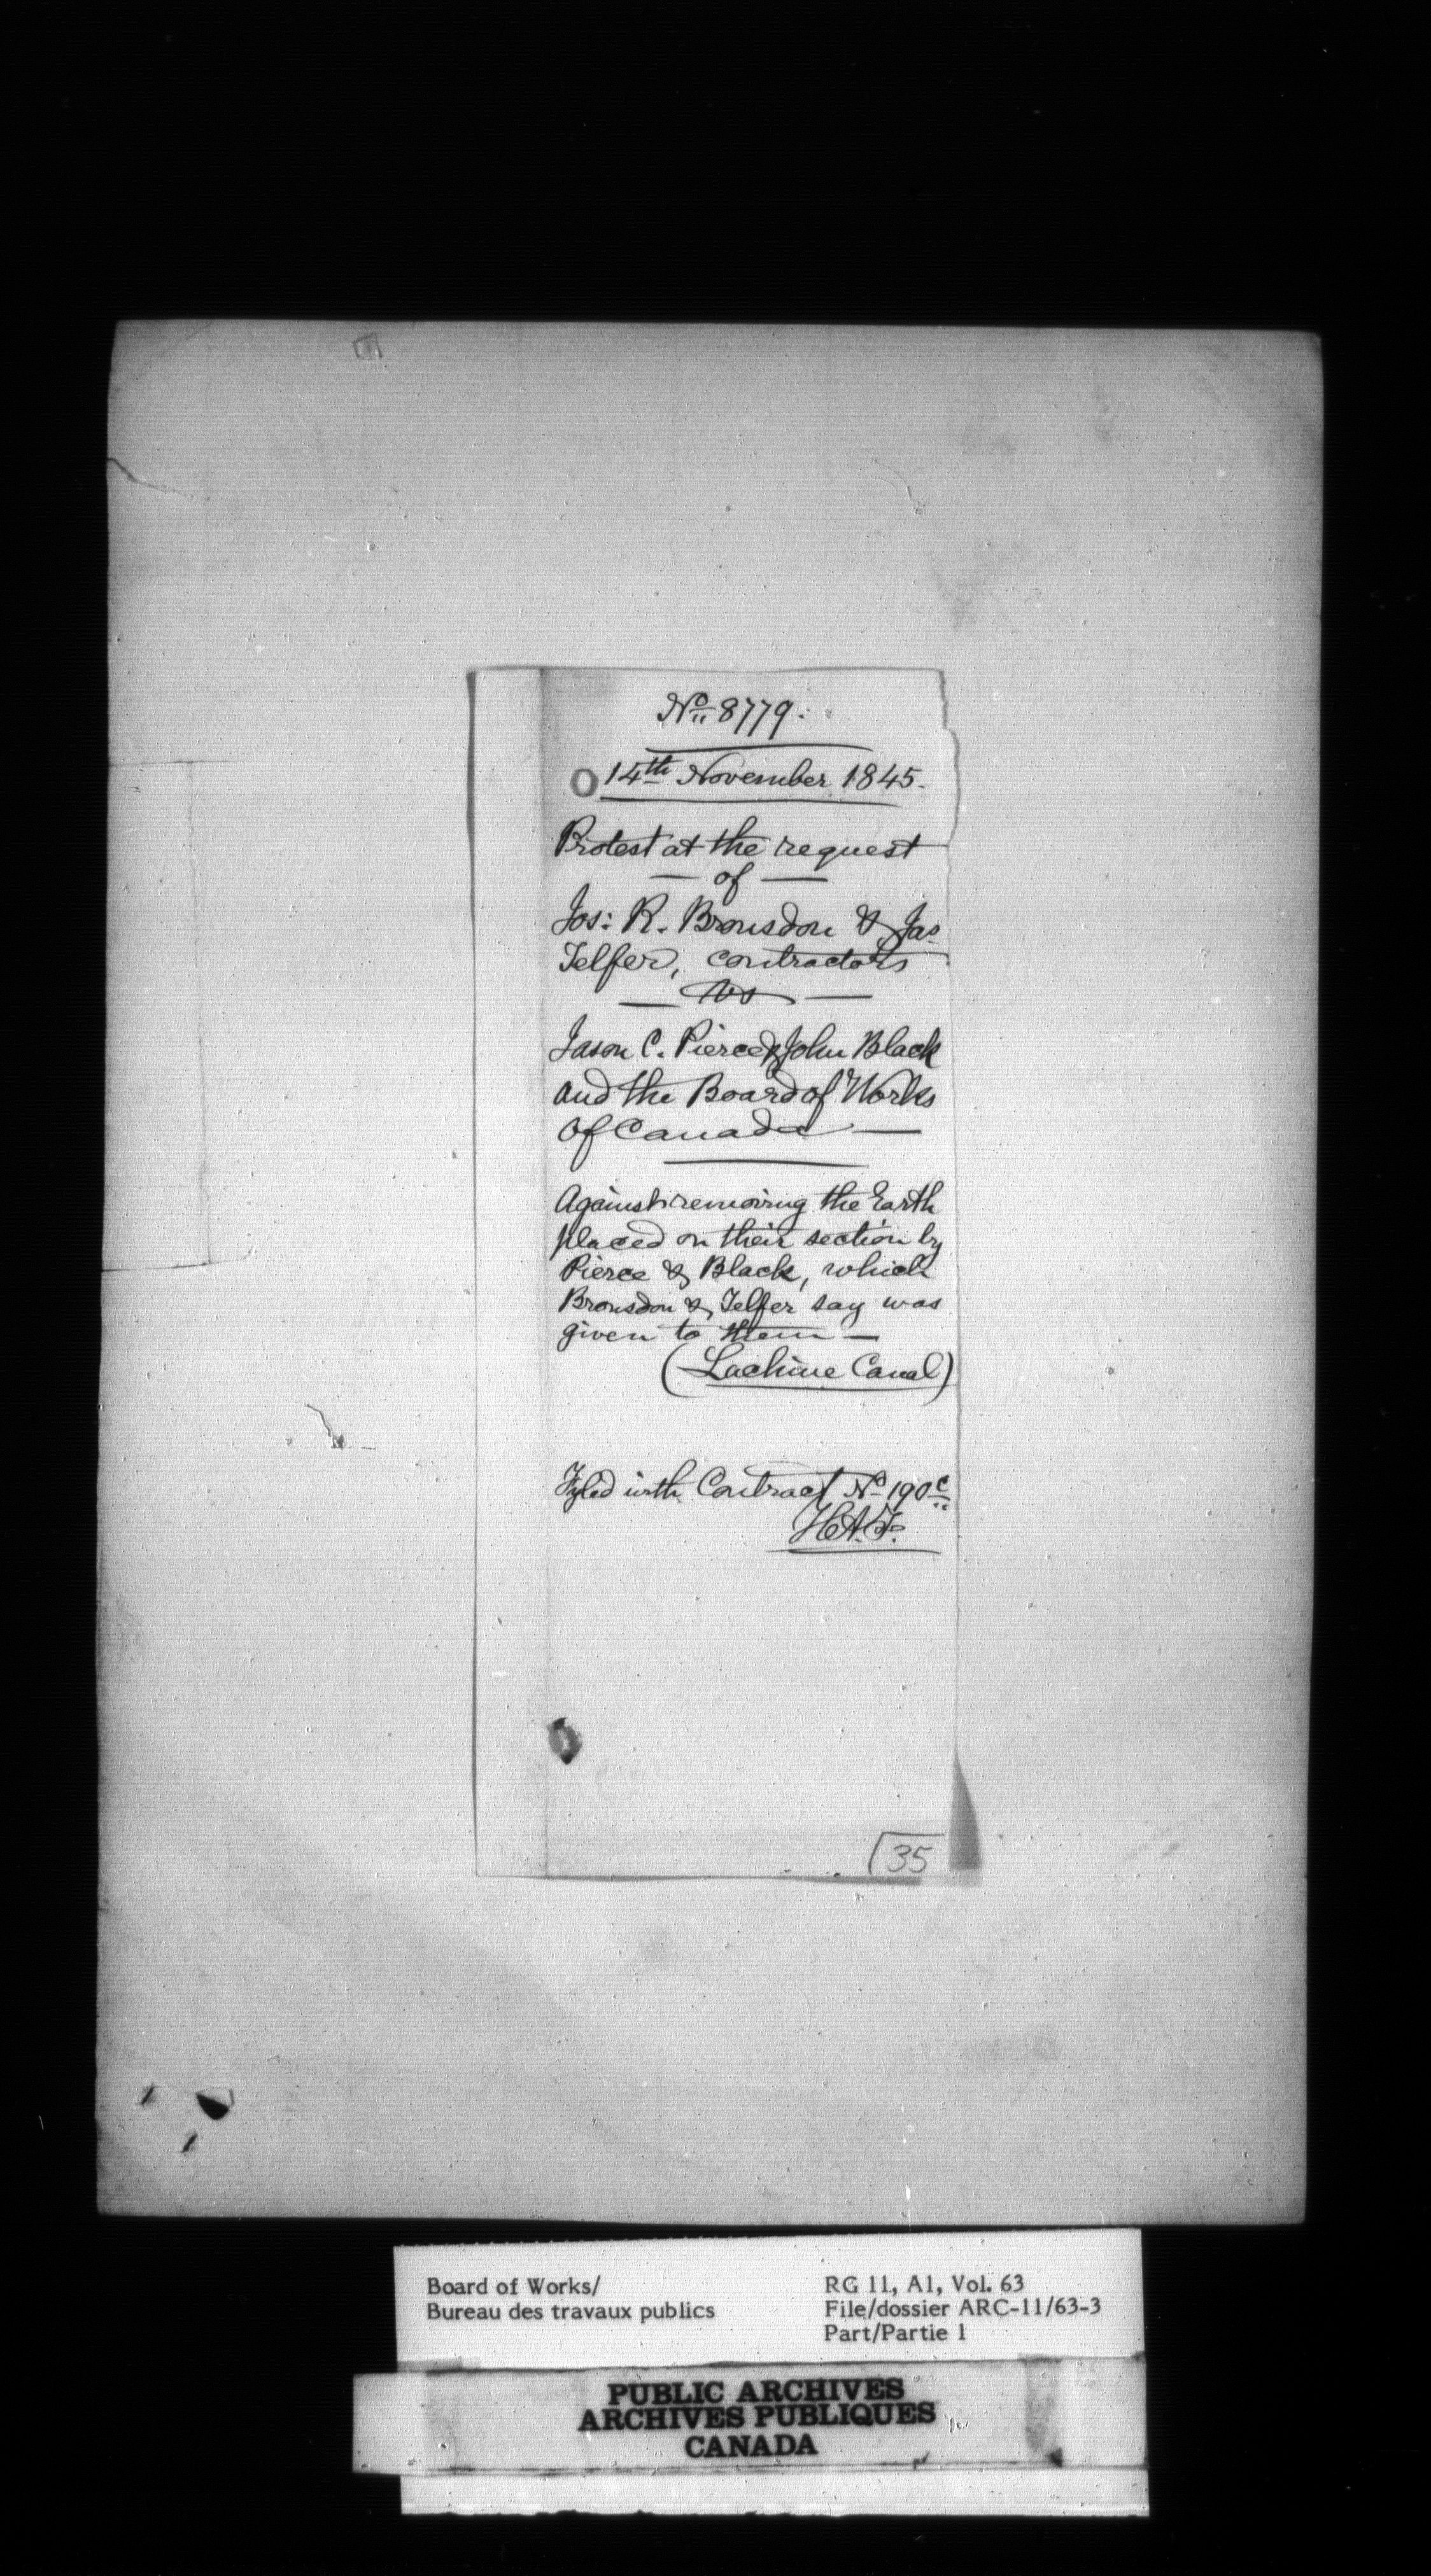 No 8779.
14th November 1845.
Protest at the request
— of —
Jos: R. Bronsdon & Jas
Telfer, contractors
— vs —
Jason C. Pierce & John Black
and the Board of Works
of Canada —
Against removing the Earth
placed on their section by
Pierce & Black, which
Bronsdon & Telfer say was
given to them —
(Lachine Canal)
Fyled with Contract No 190c
H.A.F.
35
Board of Works/
Bureau des travaux publics
RG 11, A1, Vol. 63
File/dossier ARC-11/63-3
Part/Partie 1
PUBLIC ARCHIVES
ARCHIVES PUBLIQUES
CANADA